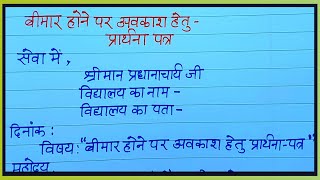 बीमार होने पर अवकाश हेतु -
प्रार्थना पत्र
सेवा में,
श्रीमान प्रधानाचार्य जी
विद्यालय का नाम -
विद्यालय का पता -
दिनांक:
विषय: "बीमार होने पर अवकाश हेतु प्रार्थना-पत्र"
महोदय